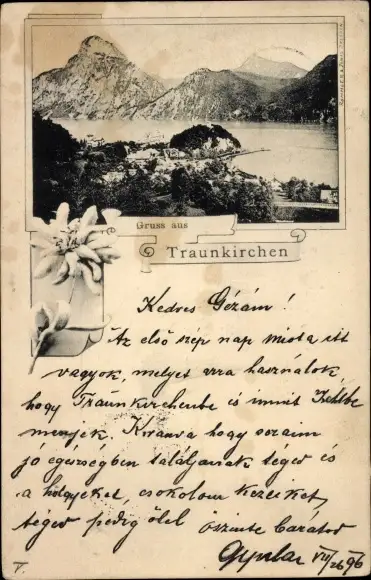 Gruss aus
Traunkirchen
Kedves Gézám!
Az első szép nap miota itt
vagyok, melyet arra használok,
hogy Traunkirchenbe és innit
menjek. Kivánva hogy soraim
jó egészségben találjanak téged és
a hölgyeket, csokolom kezeiket,
téged pedig ölel őszinte barátod
Gyula VII/26 96